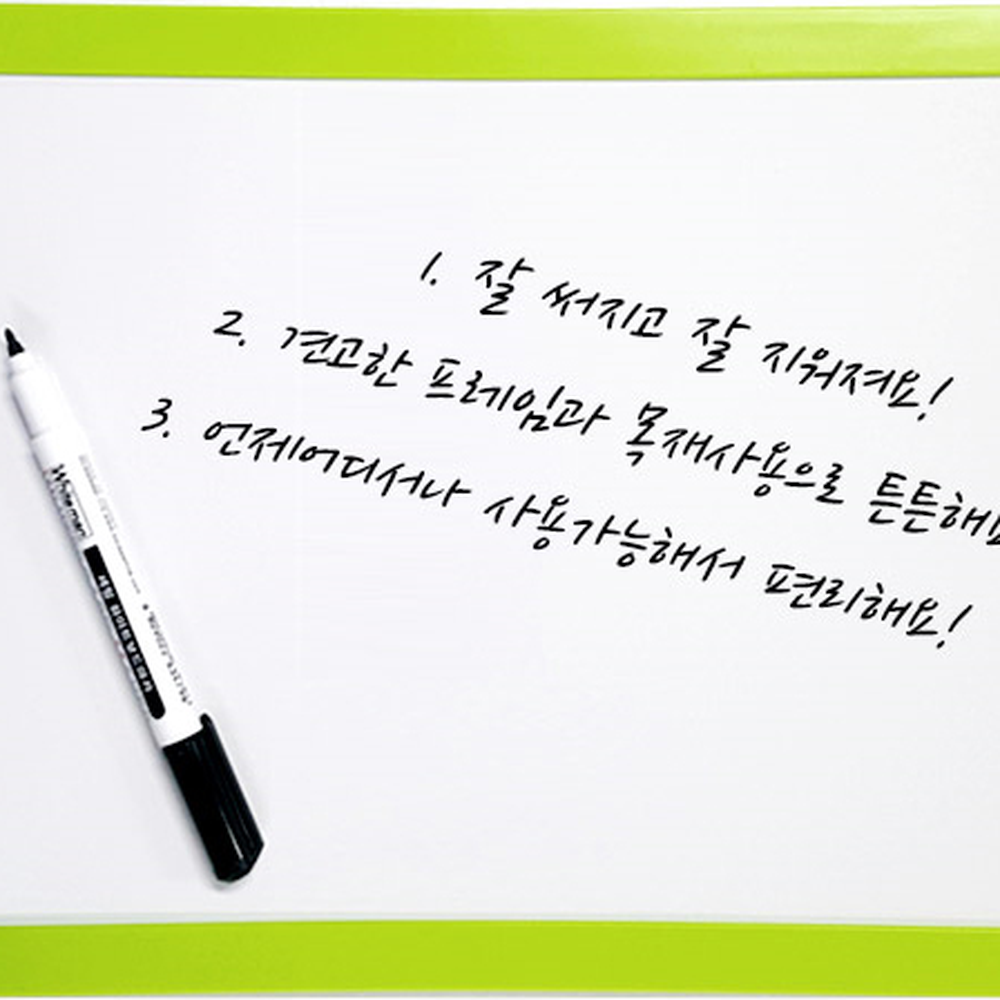 1. 잘 써지고 잘 지워져요!
2. 견고한 프레임과 목재사용으로 튼튼해요
3. 언제어디서나 사용가능해서 편리해요!
Whiteman